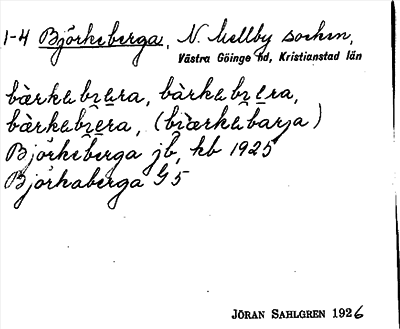 1-4 Björkeberga, N. Mellby socken,
Västra Göinge hd, Kristianstad län
bærka bræra, bàrka bræra,
bærkabræra, (biærkabarja)
Björkeberga jb, kb 1925
Björkaberga G5
JÖRAN SAHLGREN 1926